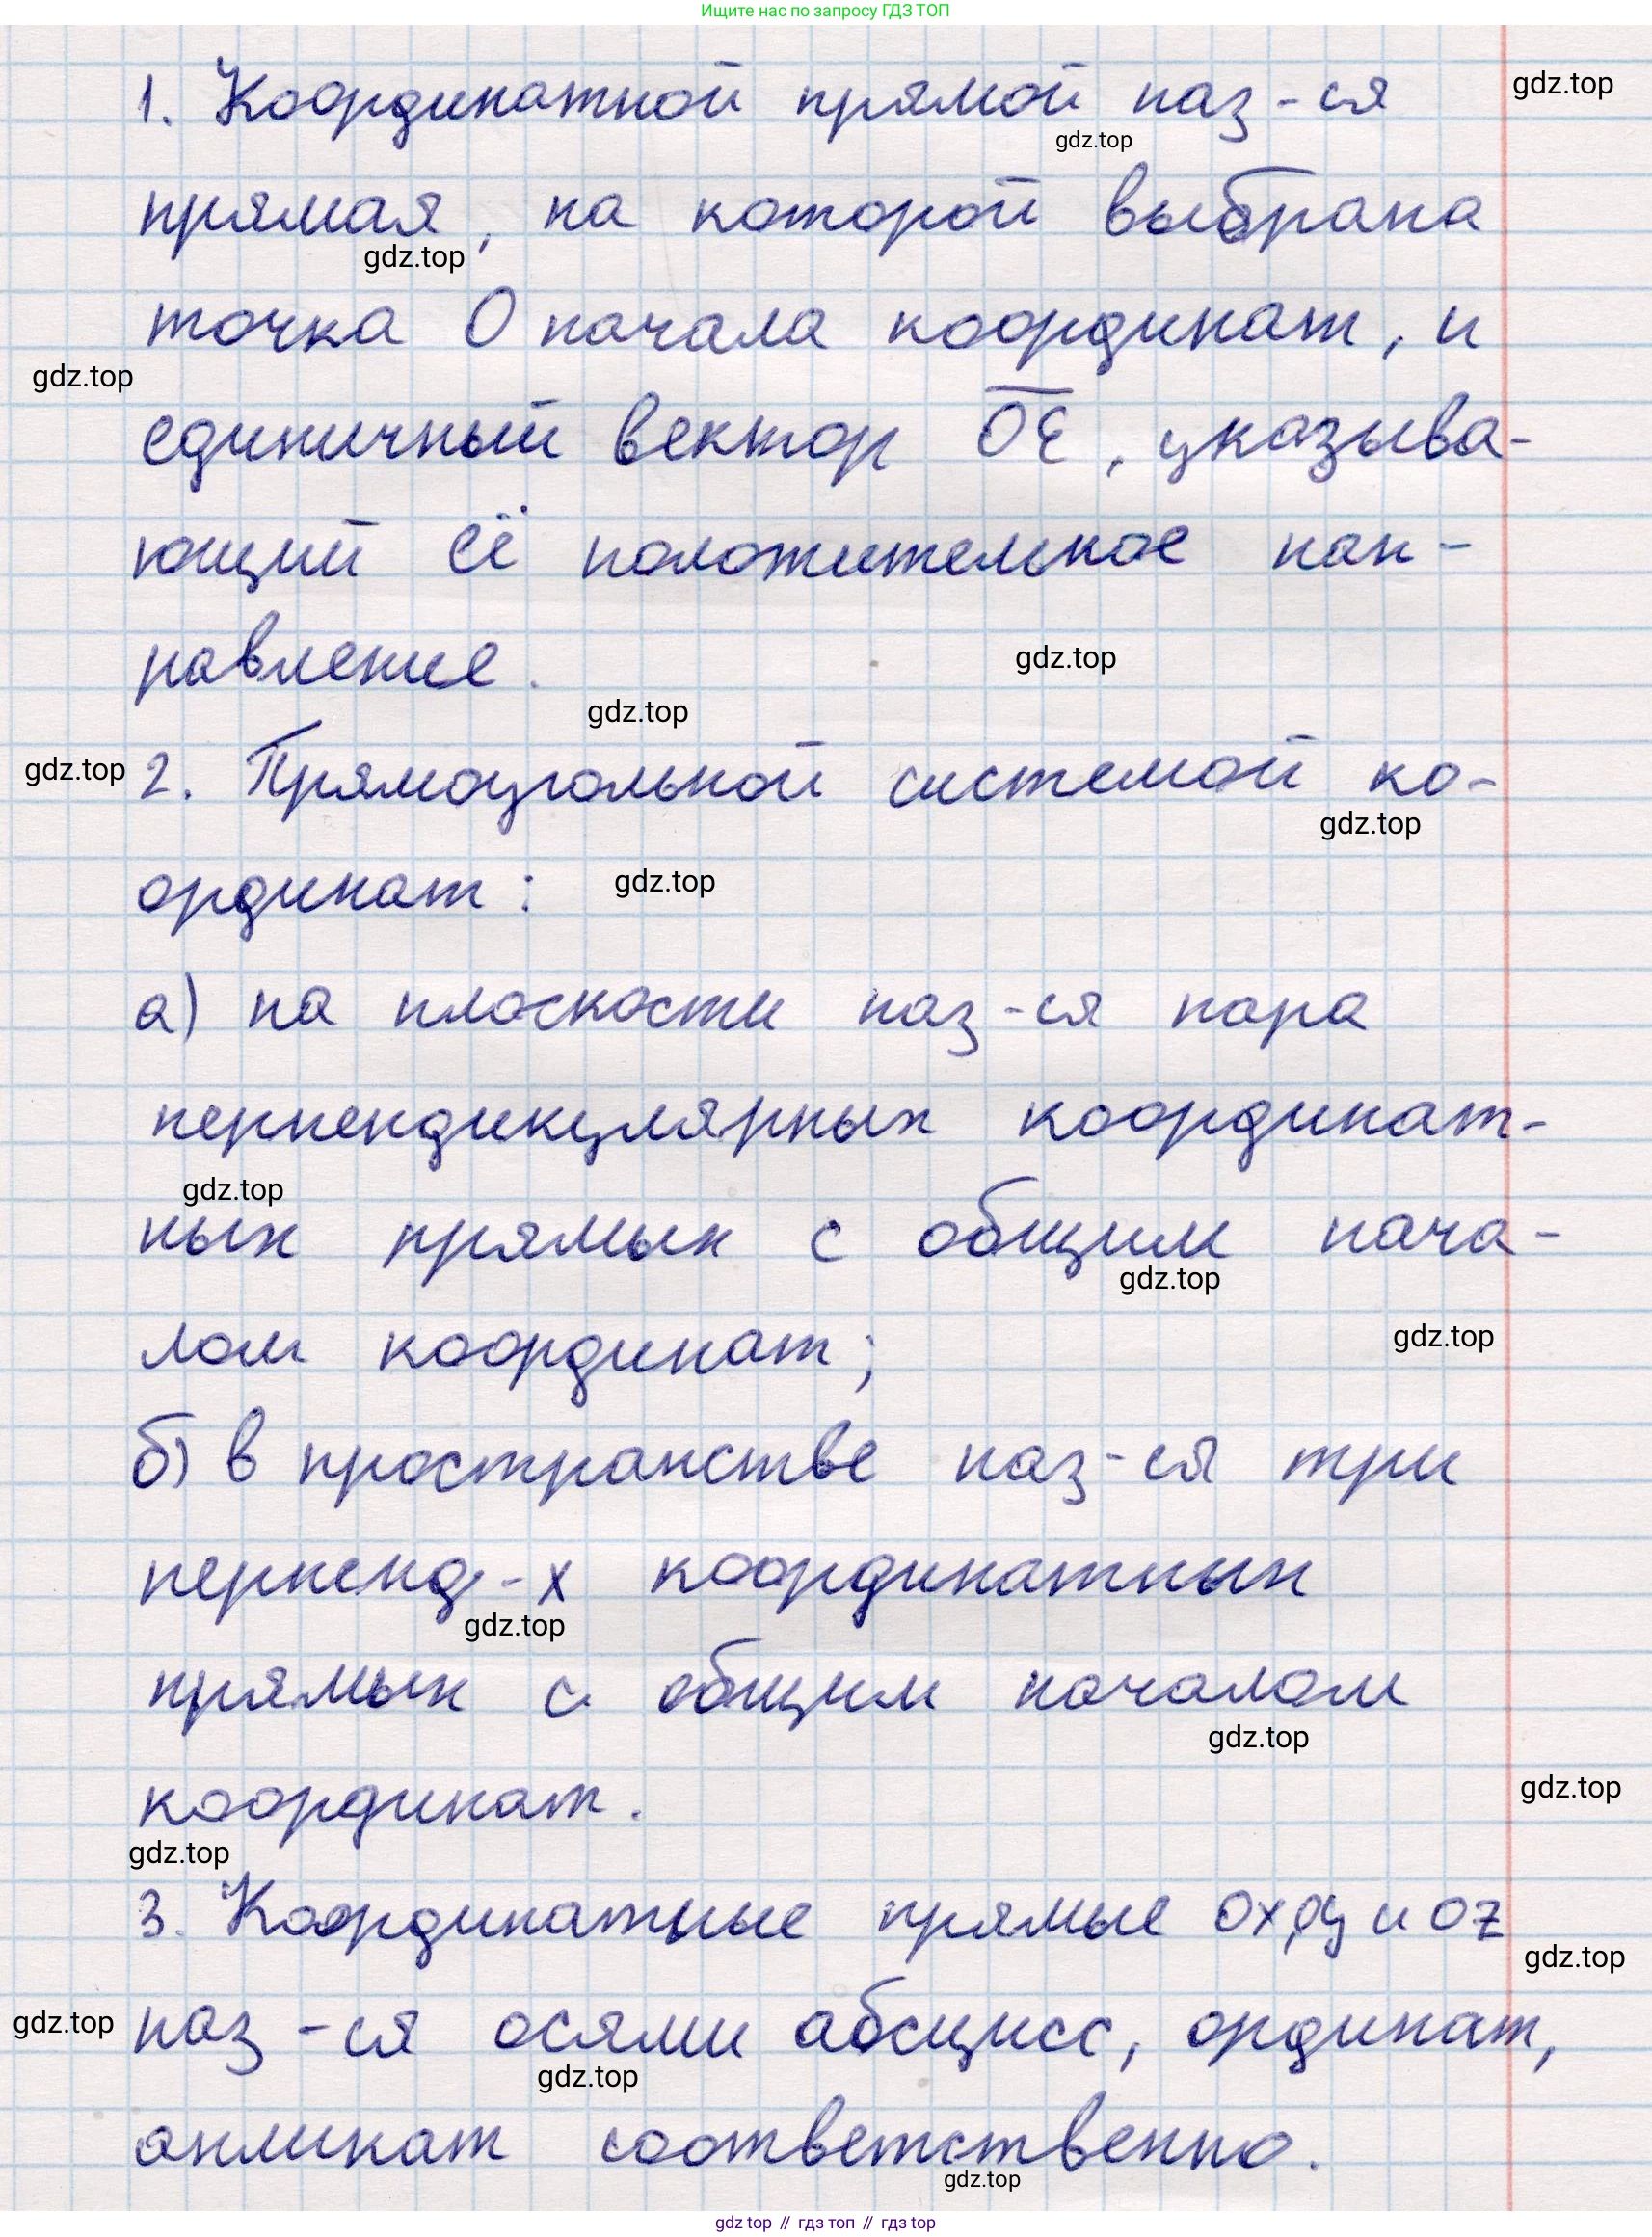 Ищите нас по запросу ГДЗ ТОП
1. Координатной прямой наз-ся
gdz.top
gdz.top
прямая, на которой выбрана
gdz.top
точка O начала координат, и
gdz.top
единичный вектор OE, указыва-
ющий её положительное нап-
равление.
gdz.top
gdz.top
gdz.top
2. Прямоугольной системой ко-
gdz.top
ординат:
gdz.top
а) на плоскости наз-ся пара
перпендикулярных координат-
gdz.top
ных прямых с общим нача-
gdz.top
лом координат;
gdz.top
б) в пространстве наз-ся три
перпенд-х координатных
gdz.top
прямых с общим началом
gdz.top
координат.
gdz.top
gdz.top
3. Координатные прямые Ox, Oy и Oz
gdz.top
наз-ся осями абсцисс, ординат,
gdz.top
gdz.top
апликат соответственно.
gdz.top
gdz top // гдз топ // гдз top